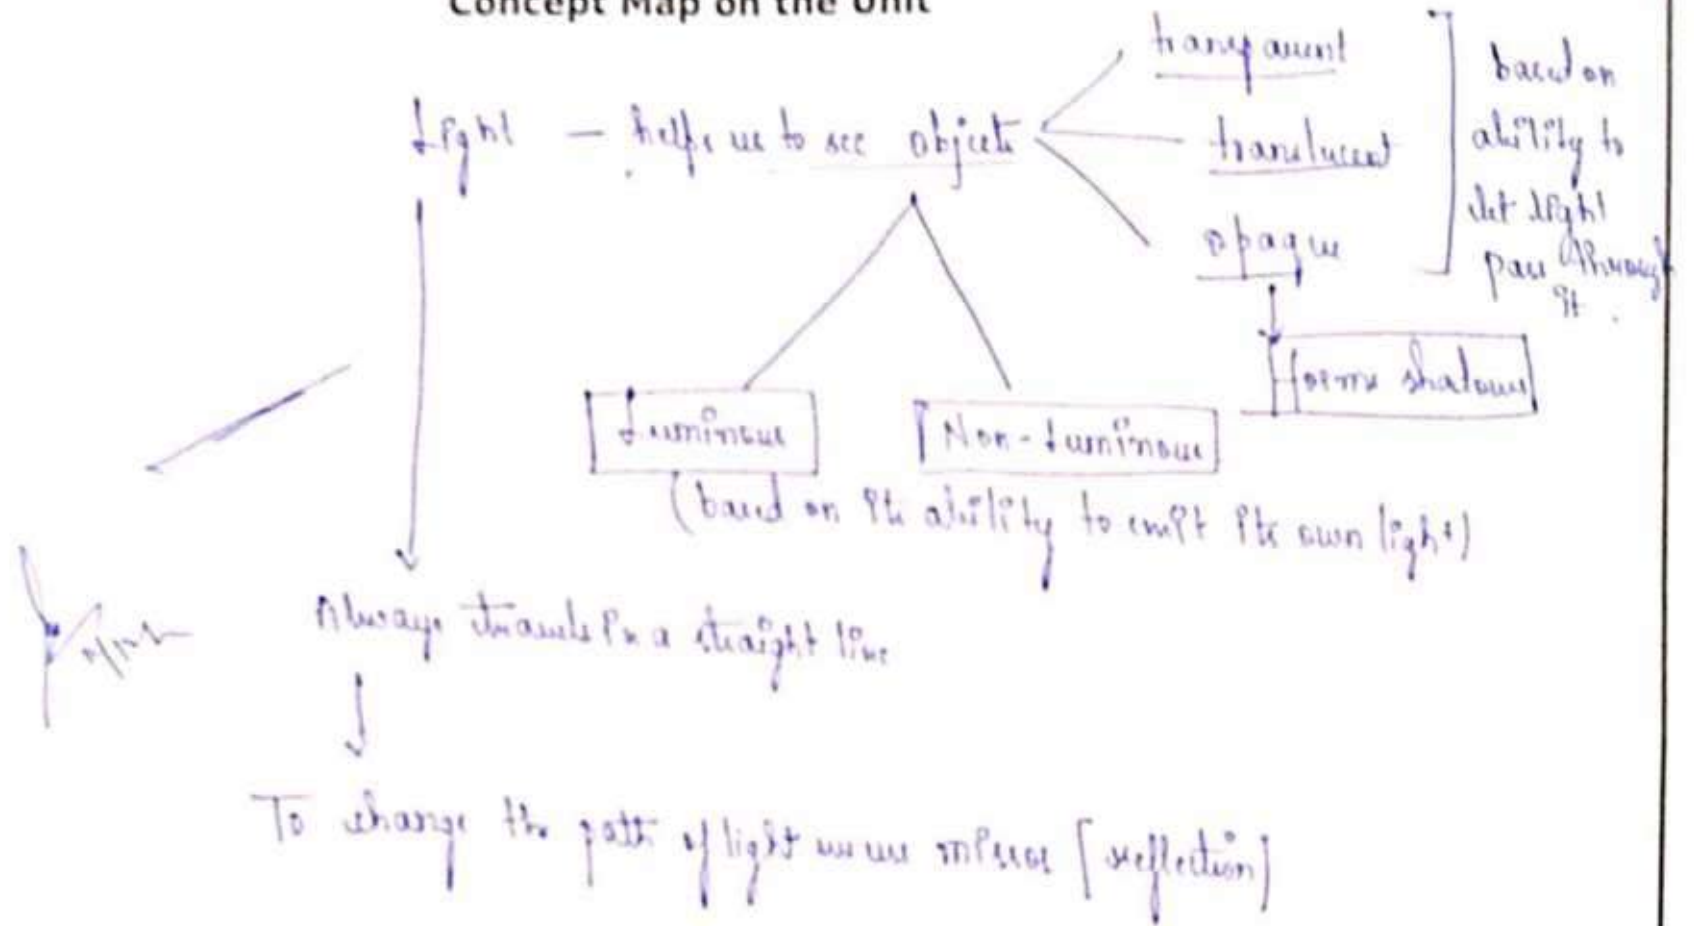 Concept Map on the Unit
Light – helps us to see objects
transparent
translucent
opaque
based on
ability to
let light
pass through
it.
forms shadows
Luminous
Non-Luminous
(based on its ability to emit its own light)
Always travels in a straight line
To change the path of light we use mirror [reflection]